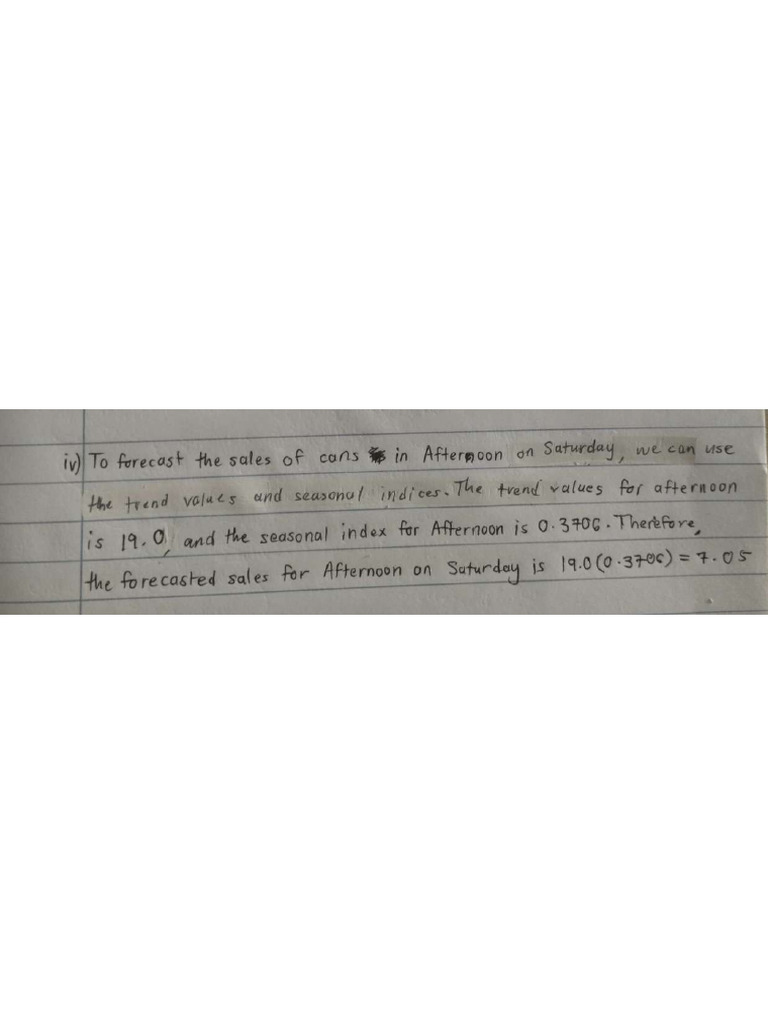 iv) To forecast the sales of cans in Afternoon on Saturday, we can use
the trend values and seasonal indices. The trend values for afternoon
is 19.0, and the seasonal index for Afternoon is 0.3706. Therefore,
the forecasted sales for Afternoon on Saturday is 19.0(0.3706) = 7.05